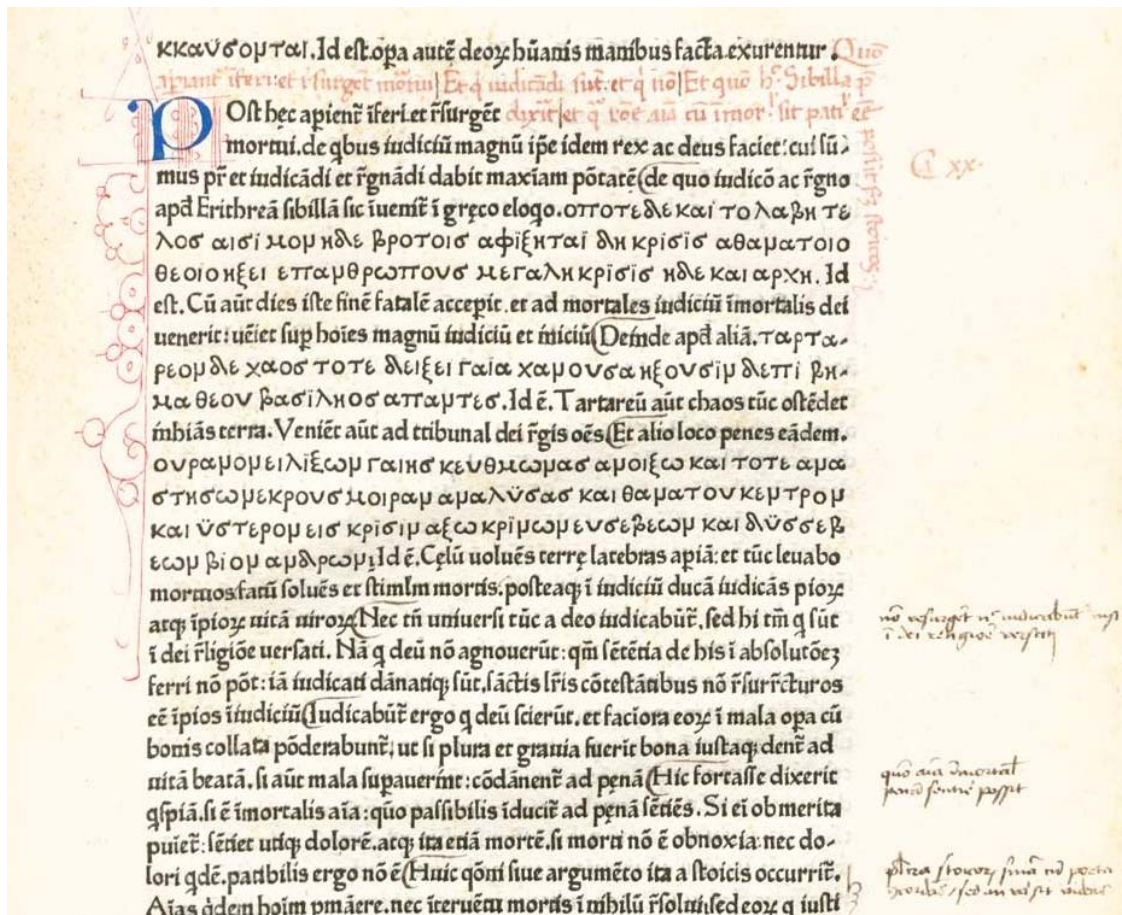 κκαύσομται. Id est. opa autē deoꝝ hūanis manibus facta exurentur. Quō
apiant̄ īferi: et r̄surget mortui Et q̇ iudicādi sūt. et q̇ nō Et quō h. Sibilla p̄
POst hęc apient̄ īferi. et r̄surgēt dixit et q̇
mortui. de qbus iudiciū magnū ip̄e idem rex ac deus faciet: cui sū⸗
mus pr̄ et iudicādi et r̄gnādi dabit maxīam põtatē (de quo iudicō ac r̄gno
Cͣ xx.
apđ Erithreā sibillā sic īuenit̄ ī gręco eloqo. οπποτε δε και το λαβη τε
λοσ αισι μομ ηδε βροτοισ αφιξηται δη κρισισ αθαματοιο
θεοιο ηξει επ παμθρωπουσ μεγαλη κρισισ ηδε και αρχη. Id
est. Cū aūt dies iste finē fatalē accepit. et ad mortales iudiciū īmortalis dei
uenerit: uēiet sup hoīes magnū iudiciū et īniciū (Deīnde apđ aliā. ταρτα-
ρεομ δε χαοσ τοτε δειξει γαια χαμουσα ηξουσιμ δεπι βη-
μα θεου βασιληοσ απαμτεσ. Id ē. Tartareū aūt chaos tūc ostēdet
īnhiās terra. Veniēt aūt ad tribunal dei r̄gis oēs (Et alio loco penes eādem.
ουραμομ ειλιξωμ γαιησ κευθμωμασ αμοιξω και τοτε αμα
στησω μεκρουσ μοιραμ αμαλύσασ και θαματου κεμτρομ
και ύστερομ εισ κρισιμ αξω κριμωμ ευσεβεωμ και δύσσεβ
εωμ βιομ αμδρωμ. Id ē. Cęlū uoluēs terrę latebras apiā: et tūc leuabo
mortuos fatū soluēs et stimlm mortis. posteaq; ī iudiciū ducā iudicās pioꝝ
atq; īpioꝝ uitā uiroꝝ (Nec tn̄ uniuersi tūc a deo iudicabūt̄. sed hi tm̄ q sūt
ī dei r̄ligiōe uersati. Nā q deū nō agnouerūt: qm̄ sētētia de his ī absolutōeʒ
ferri nō pōt: iā iudicati dānatiq; sūt. sāctis lr̄is cōtestātibus nō r̄surr̄cturos
eē īpios ī iudiciū (Iudicabūt̄ ergo q deū scierūt. et faciora eoꝝ ī mala opa cū
bonis collata pōderabunt̄. ut si plura et grauia fuerīt bona iustaq; dent̄ ad
uitā beatā. si aūt mala supauerīnt: cōdānent̄ ad pęnā (Hic fortasse dixerit
qspiā. si ē īmortalis aīa: quō passibilis īducit̄ ad pęnā sētiēs. Si eī ob merita
puiet̄: sētiet utiq; dolorē. atq; ita etiā mortē. si morti nō ē obnoxia: nec do-
lori qdē. patibilis ergo nō ē (Huic qōni siue argumēto ita a stoicis occurrit̄.
Aīas qdem hoīm pmāere. nec īteruētu mortis ī nihilū r̄solui. sed eoꝝ q iusti